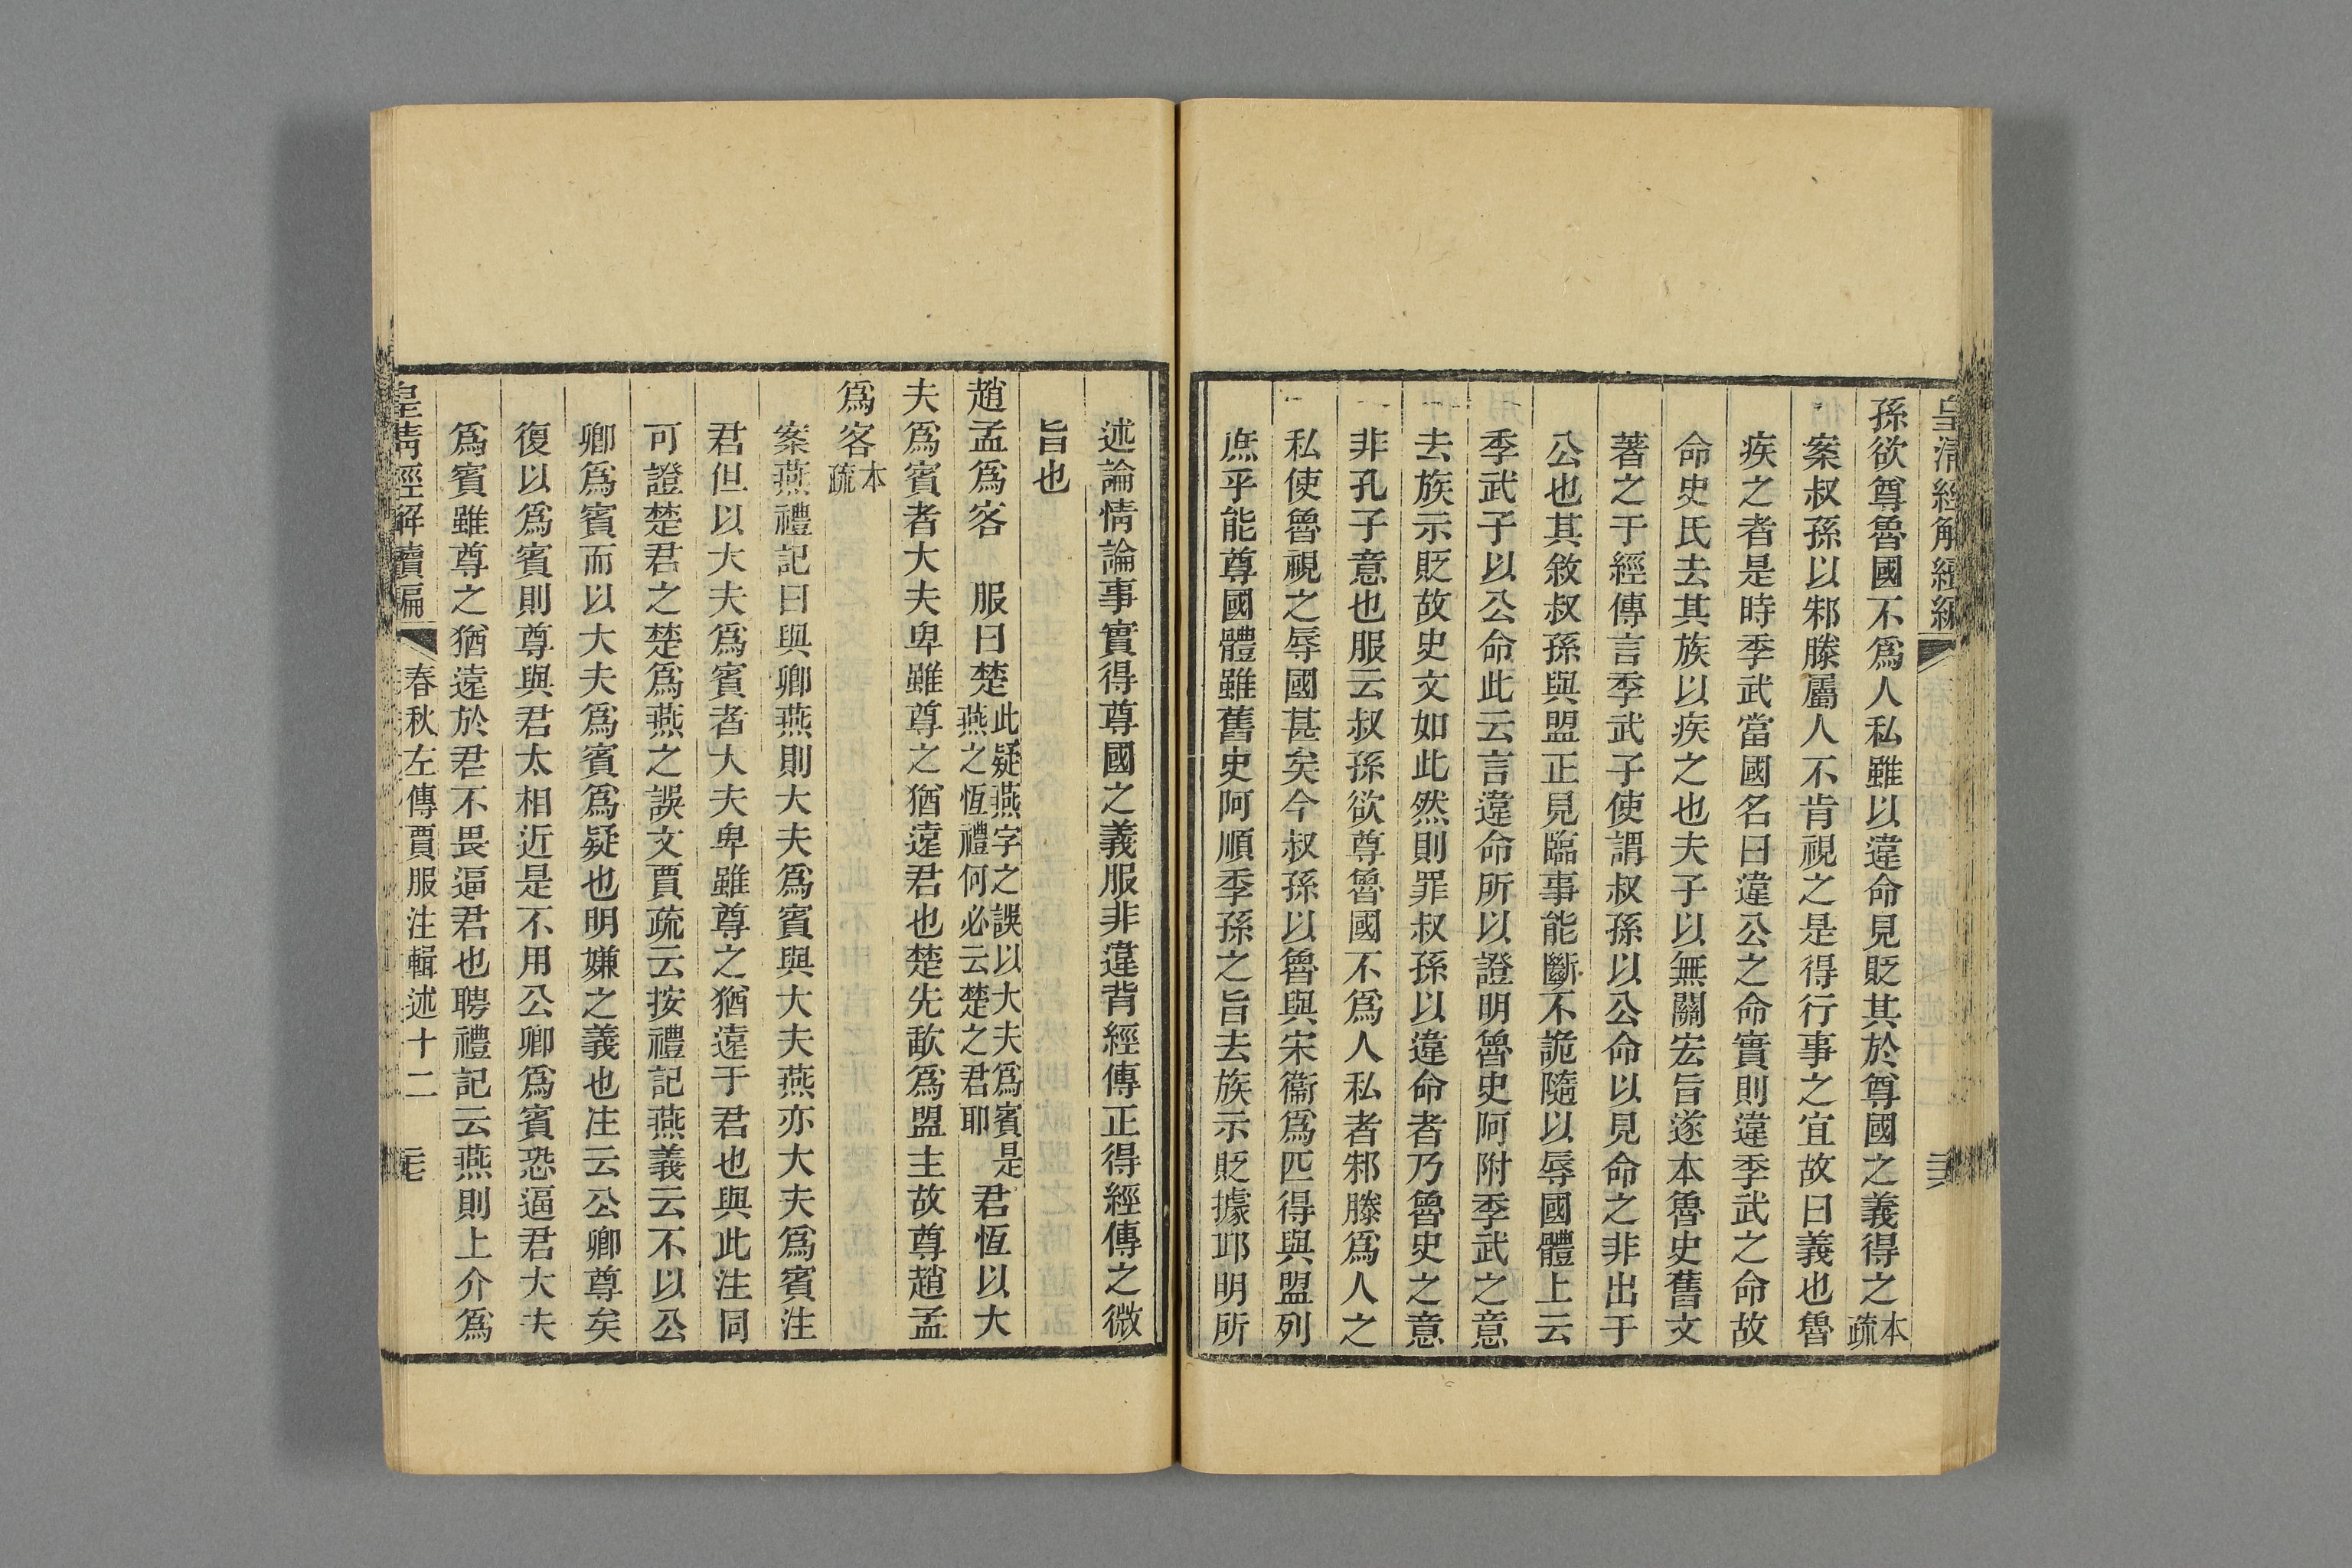 皇清經解續編
孫欲尊魯國不爲人私雖以違命見貶其於尊國之義得之本疏
案叔孫以邾滕屬人不肯視之是得行事之宜故曰義也魯
疾之者是時季武當國名曰違公之命實則違季武之命故
命史氏去其族以疾之也夫子以無關宏旨遂本魯史舊文
著之于經傳言季武子使謂叔孫以公命以見命之非出于
公也其敘叔孫與盟正見臨事能斷不詭隨以辱國體上云
季武子以公命此云言違命所以證明魯史阿附季武之意
去族示貶故史文如此然則罪叔孫以違命者乃魯史之意
非孔子意也服云叔孫欲尊魯國不爲人私者邾滕爲人之
私使魯視之辱國甚矣今叔孫以魯與宋衞爲匹得與盟列
庶乎能尊國體雖舊史阿順季孫之旨去族示貶據邱明所
述論情論事實得尊國之義服非違背經傳正得經傳之微
旨也
趙孟爲客 服曰楚此疑燕字之誤以大夫爲賓是燕之恆禮何必云楚之君耶君恆以大
夫爲賓者大夫卑雖尊之猶遠君也楚先歃爲盟主故尊趙孟
爲客本疏
案燕禮記曰與卿燕則大夫爲賓與大夫燕亦大夫爲賓注
君但以大夫爲賓者大夫卑雖尊之猶遠于君也與此注同
可證楚君之楚爲燕之誤文賈疏云按禮記燕義云不以公
卿爲賓而以大夫爲賓爲疑也明嫌之義也注云公卿尊矣
復以爲賓則尊與君太相近是不用公卿爲賓恐逼君大夫
爲賓雖尊之猶遠於君不畏逼君也聘禮記云燕則上介爲
皇清經解續編 春秋左傳賈服注輯述十二